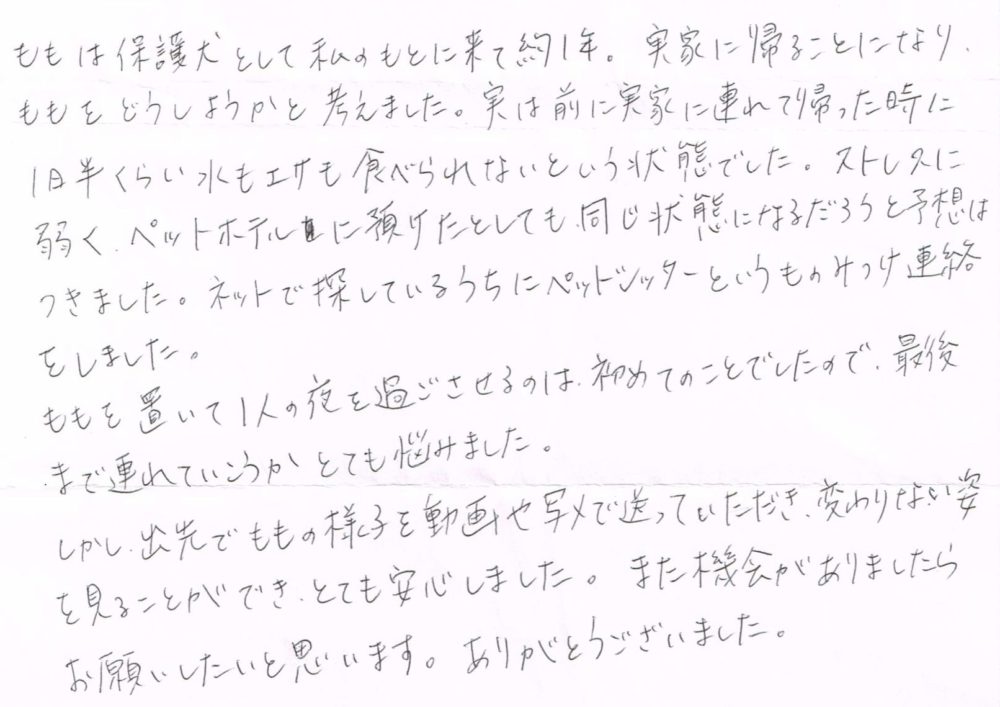 ももは保護犬として私のもとに来て約1年。実家に帰ることになり、
ももをどうしようかと考えました。実は前に実家に連れて帰った時に
1日半くらい水もエサも食べられないという状態でした。ストレスに
弱く、ペットホテルに預けたとしても、同じ状態になるだろうと予想は
つきました。ネットで探しているうちにペットシッターというものみつけ連絡
をしました。
ももを置いて1人の夜を過ごさせるのは、初めてのことでしたので、最後
まで連れていこうかとても悩みました。
しかし、出先でももの様子を動画や写メで送っていただき、変わりない姿
を見ることができ、とても安心しました。また機会がありましたら
お願いしたいと思います。ありがとうございました。